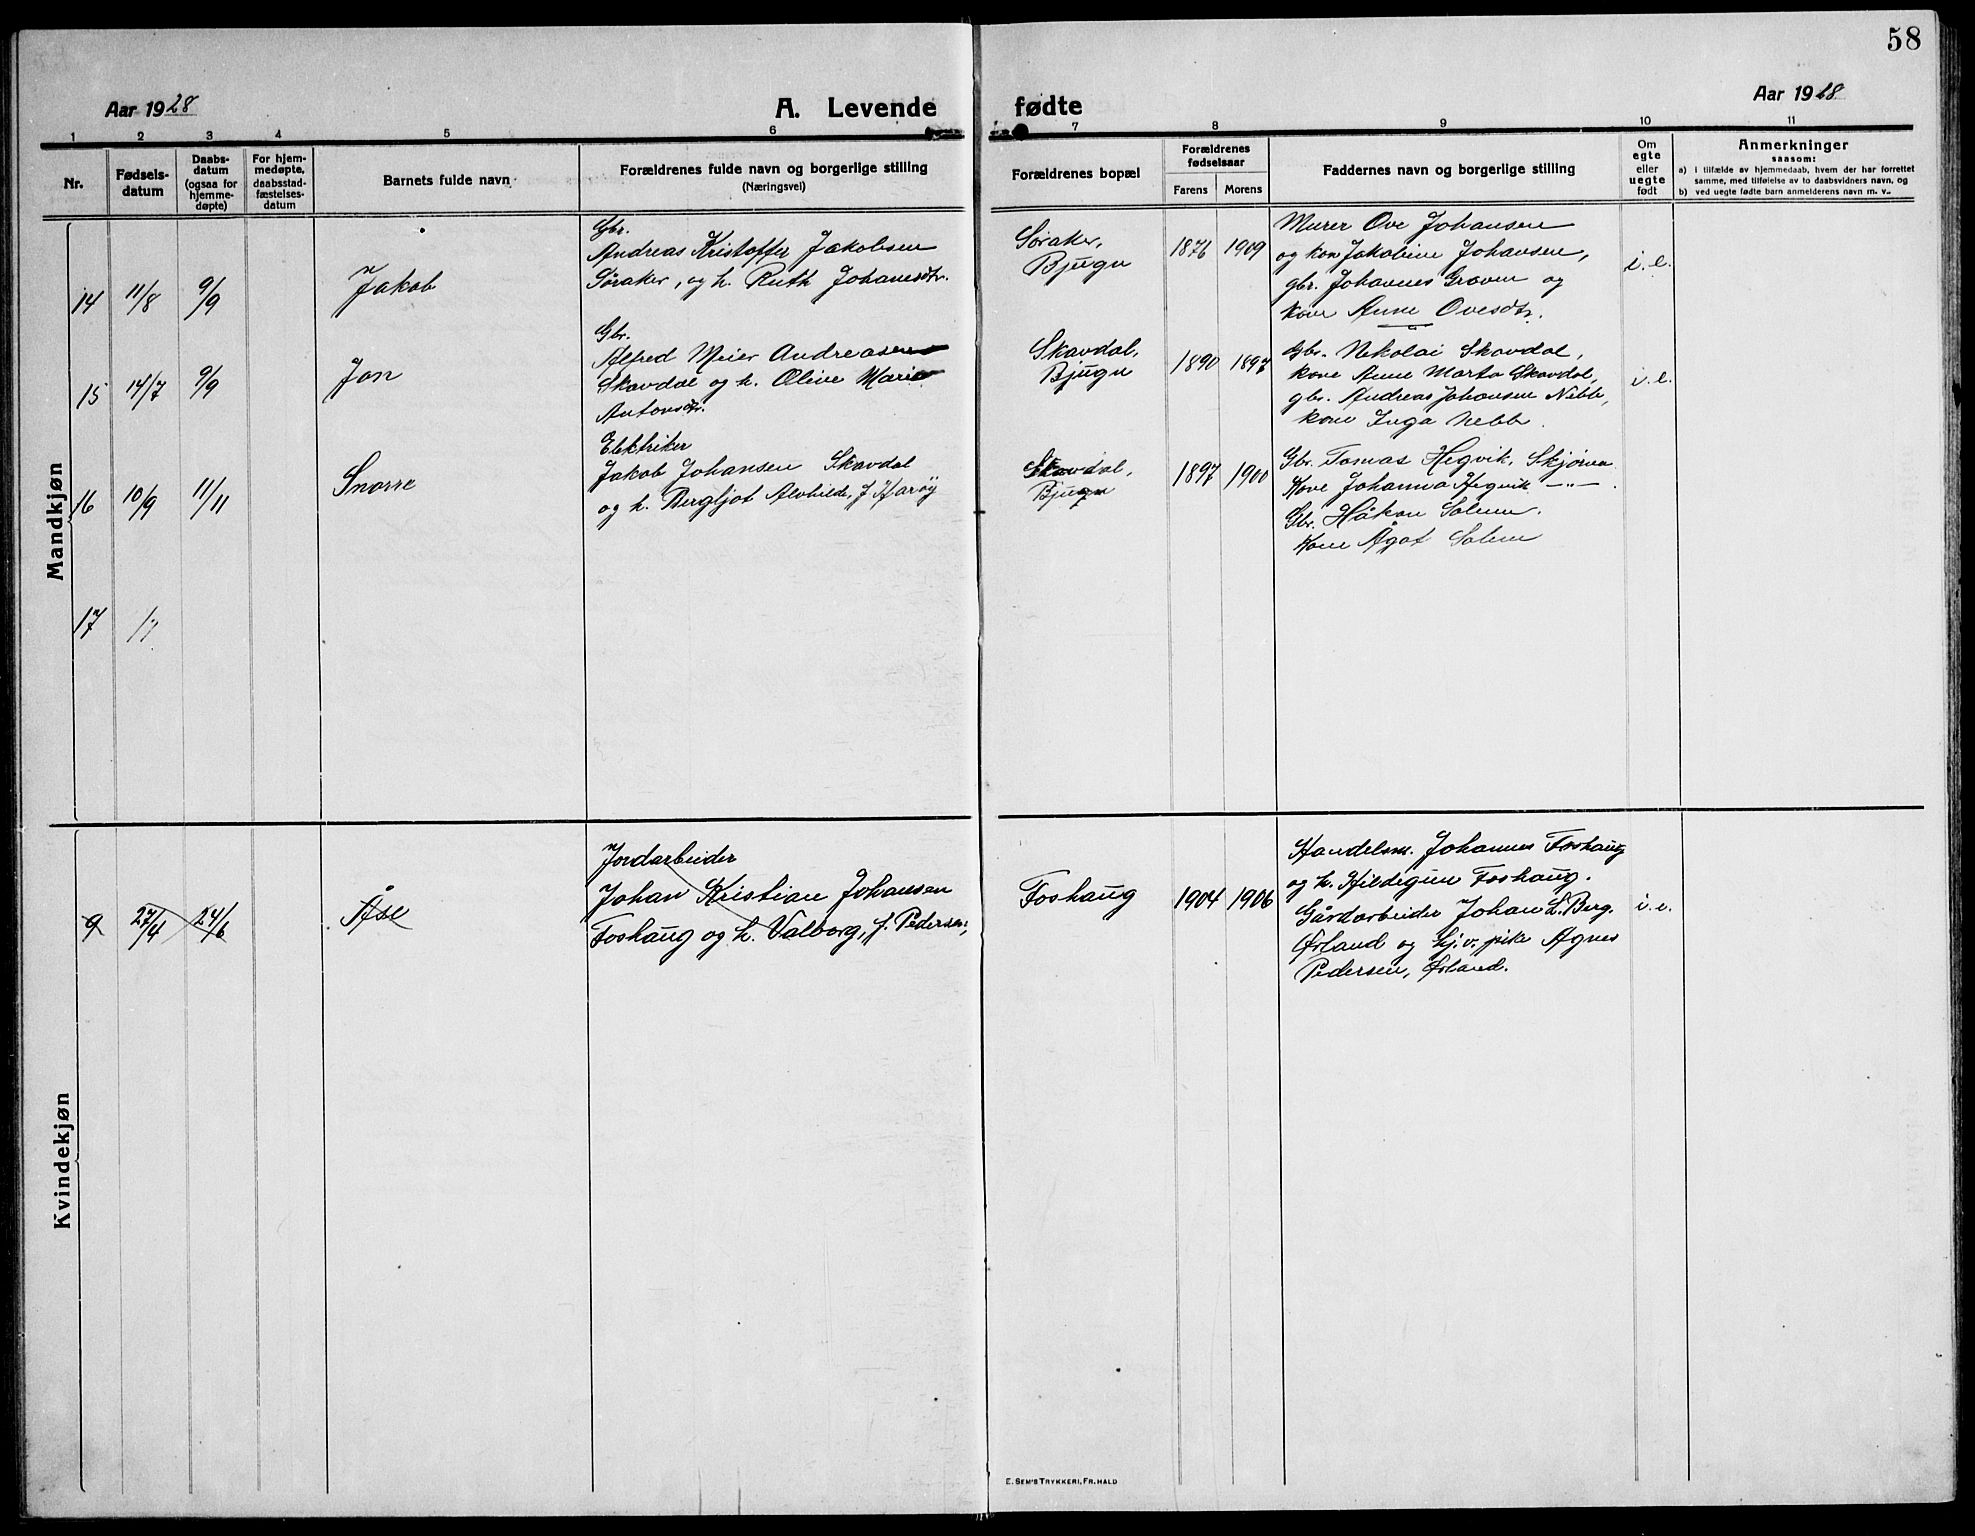 58
Aar 1928
A. Levende fødte
Aar 1928
1 2 3 4 5 6 7 8 9 10 11
Nr.
Fødsels-
datum
Daabs-
datum
(ogsaa for
hjemme-
døpte)
For hjem-
medøpte,
daabsstad-
fæstelses-
datum
Barnets fulde navn
Forældrenes fulde navn og borgerlige stilling
(Næringsvei)
Forældrenes bopæl
Forældrenes
fødselsaar
Farens Morens
Faddernes navn og borgerlige stilling
Om
egte
eller
uegte
født
Anmerkninger
saasom:
a) i tilfælde av hjemmedaab, hvem der har forrettet
samme, med tilføielse av to daabsvidners navn, og
b) ved uegte fødte barn anmelderens navn m. v..
Mandkjøn
14 11/8 9/9 Jakob
Gbr.
Andreas Kristoffer Jakobsen
Søraker, og h. Ruth Johanesdtr.
Søraker,
Bjugn
1876 1909
Murer Ove Johansen
og kon Jakobine Johansen,
gbr. Johannes Graven og
kone Anne Ovesdtr.
i. e.
15 14/7 9/9 Jon
Gbr.
Alfred Meier Andreasen
Skavdal og h. Olive Marie
Antonsdtr.
Skavdal,
Bjugn
1890 1897
Gbr. Nekolai Skavdal,
kone Anne Marta Skavdal,
gbr. Andreas Johansen Nebb,
kone Inga Nebb.
i. e.
16 10/9 11/11 Snorre
Elektriker
Jakob Johansen Skavdal
og h. Bergljot Alvhilde, f. Harøy
Skavdal,
Bjugn
1897 1900
Gbr. Tomas Hegvik, Skjørna
Kone Johanna Hegvik —"— .
Gbr. Håkon Solem.
Kone Ågot Solem
17 1
Kvindekjøn
9 27/4 24/6 Åse
Jordarbeider
Johan Kristian Johansen
Foshaug og h. Valborg, f. Pedersen,
Foshaug
1904 1906
Handelsm. Johannes Foshaug
og h. Hildegun Foshaug.
Gårdarbeider Johan L. Berg,
Ørland og hj.v. pike Agnes
Pedersen, Ørland.
i. e.
E. SEM'S TRYKKERI, FR.HALD